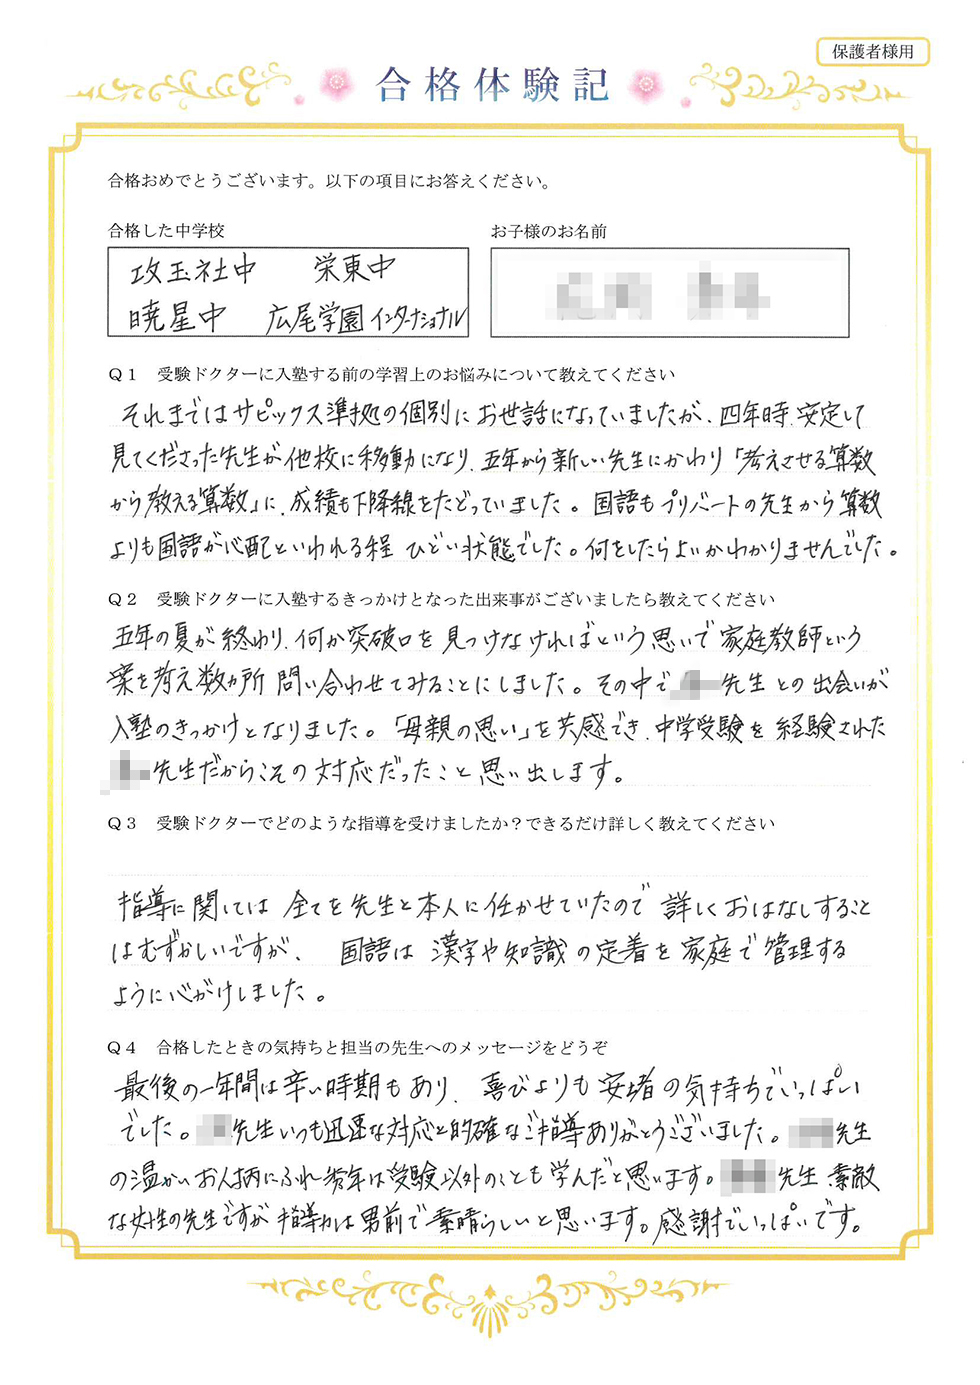 保護者様用
合格体験記
合格おめでとうございます。以下の項目にお答えください。
合格した中学校
お子様のお名前
攻玉社中 栄東中
暁星中 広尾学園インターナショナル
Q1 受験ドクターに入塾する前の学習上のお悩みについて教えてください
それまではサピックス準拠の個別にお世話になっていましたが、四年時、安定して
見てくださった先生が他校に移動になり、五年から新しい先生にかわり「考えさせる算数
から教える算数」に、成績も下降線をたどっていました。国語もプリバートの先生から算数
よりも国語が心配といわれる程 ひどい状態でした。何をしたらよいかわかりませんでした。
Q2 受験ドクターに入塾するきっかけとなった出来事がございましたら教えてください
五年の夏が終わり、何か突破口を見つけなければという思いで家庭教師という
案を考え数ヵ所 問い合わせてみることにしました。その中で 先生との出会いが
入塾のきっかけとなりました。「母親の思い」を共感でき、中学受験を経験された
先生だからこその対応だったこと思い出します。
Q3 受験ドクターでどのような指導を受けましたか?できるだけ詳しく教えてください
指導に関しては 全てを先生と本人に任かせていたので 詳しくおはなしすること
はむずかしいですが、 国語は漢字や知識の定着を家庭で管理する
ように心がけしました。
Q4 合格したときの気持ちと担当の先生へのメッセージをどうぞ
最後の一年間は辛い時期もあり、喜びよりも安堵の気持ちでいっぱい
でした。 先生いつも迅速な対応と的確なご指導ありがとうございました。 先生
の温かいお人柄にふれ 年は受験以外のことも学んだと思います。 先生、素敵
な女性の先生ですが指導力は男前で素晴らしいと思います。感謝でいっぱいです。